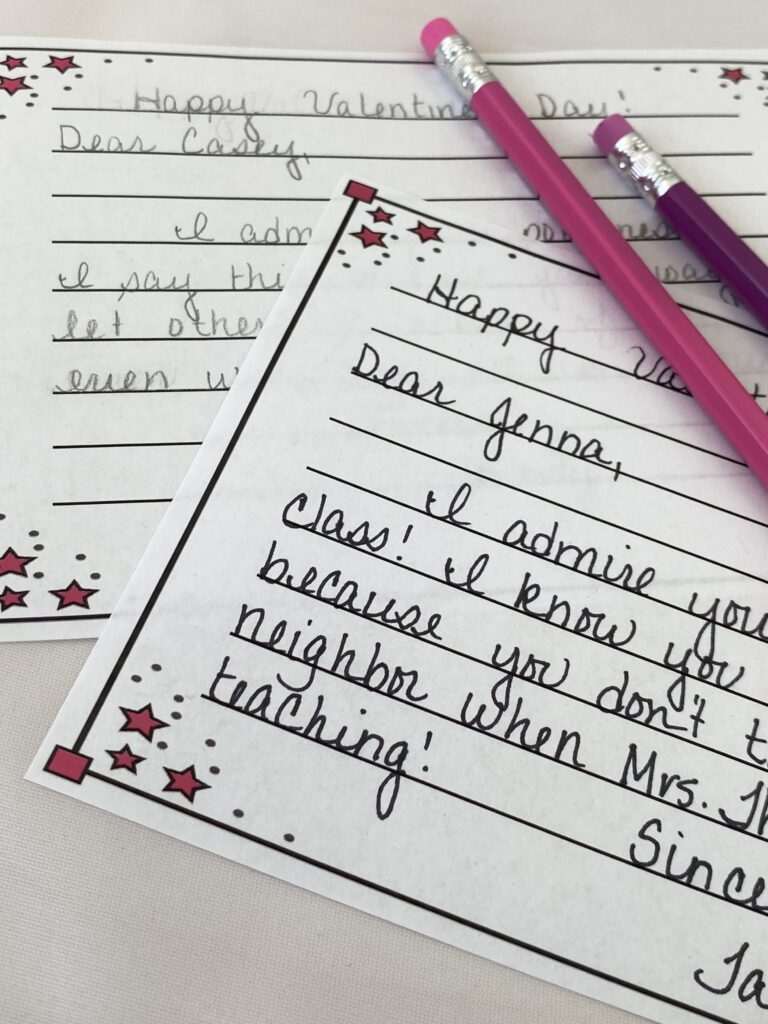 Happy Valentine Day!
Dear Casey,
I adm
I say thi
let other
even w
Happy Va
Dear Jenna,
I admire you
class! I know you
because you don't t
neighbor when Mrs. Th
teaching!
Since
Ja